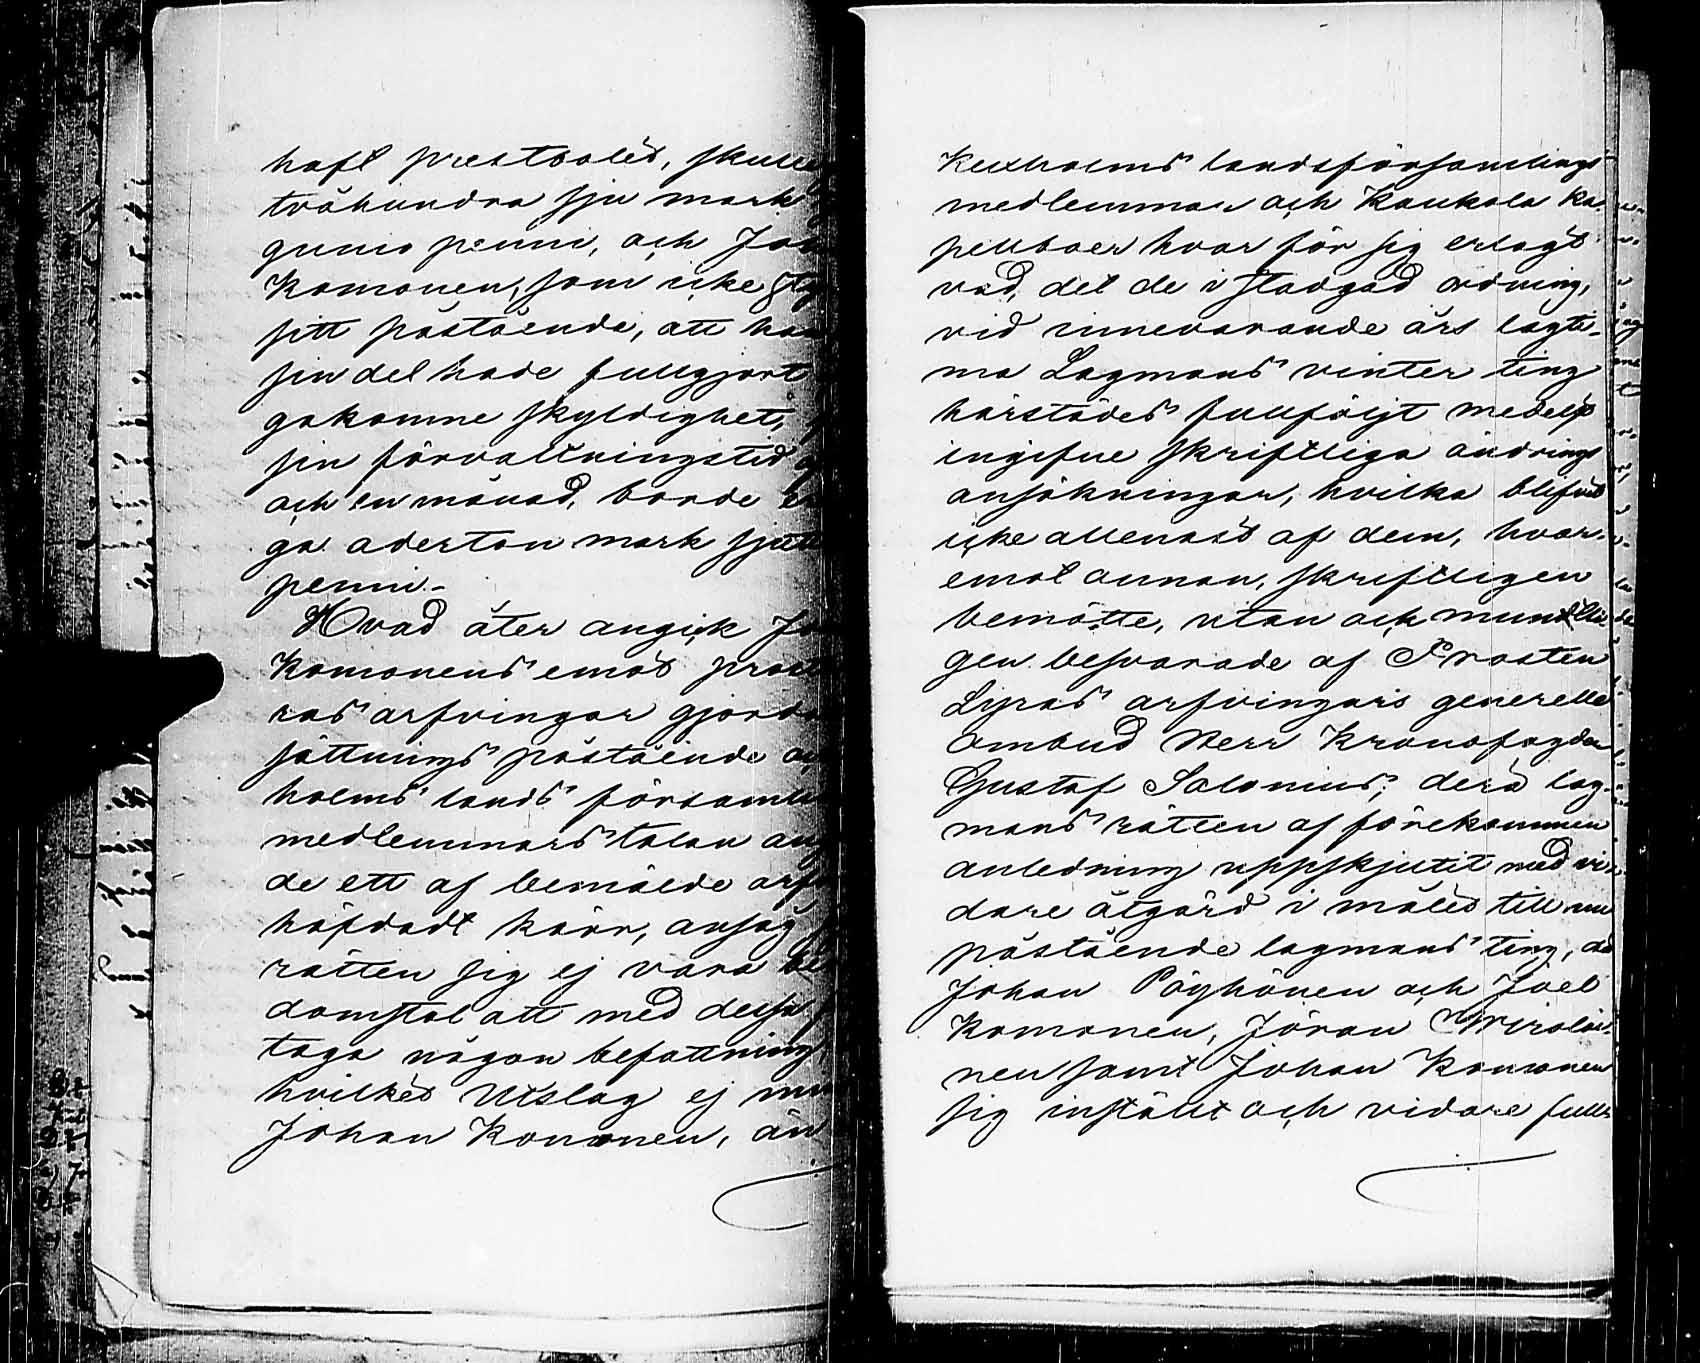 haft prestbolet, skulle
tvåhundra sju mark
gunio penni, och Joh
Komonen, som icke sty
sitt påstående, att han
sin del hade fullgjort
gakomne skyldighet,
sin förvaltningstid
och en månad, borde
ga aderton mark sjutt
penni.
Hvad åter angick Jo
Komonens emot prost
ras arfvingar gjorde
sättnings påstående oc
holms lands församli
medlemmars talan an
de ett af bemälde arf
häfdadt kärr, ansåg
rätten sig ej vara be
domstol att med dessa
taga någon befattning,
hvilket Utslag ej min
Johan Kononen, än
Kexholms landsförsamlings
medlemmar och Kaukola ka-
pellboer hvar för sig erlagt
vad, det de i stadgad ordning,
vid innevarande års lagti-
ma Lagmans vinter ting
härstädes fullföljt medelst
ingifne skriftliga ändrings
ansökningar, hvilka blifvit
icke allenast af dem, hvar-
emot annan, skriftligen
bemötte, utan och mundtli-
gen besvarade af Prosten
Lyras arfvingars generella
ombud Herr Kronofogden
Gustaf Salonius; derå lag-
mans rätten af förekommen
anledning uppskjutit med vi-
dare åtgärd i målet till nu
påstående lagmans ting, då
Johan Pöyhönen och Joel
Komonen, Jöran Wirolai-
nen samt Johan Kononen
sig inställt och vidare full-